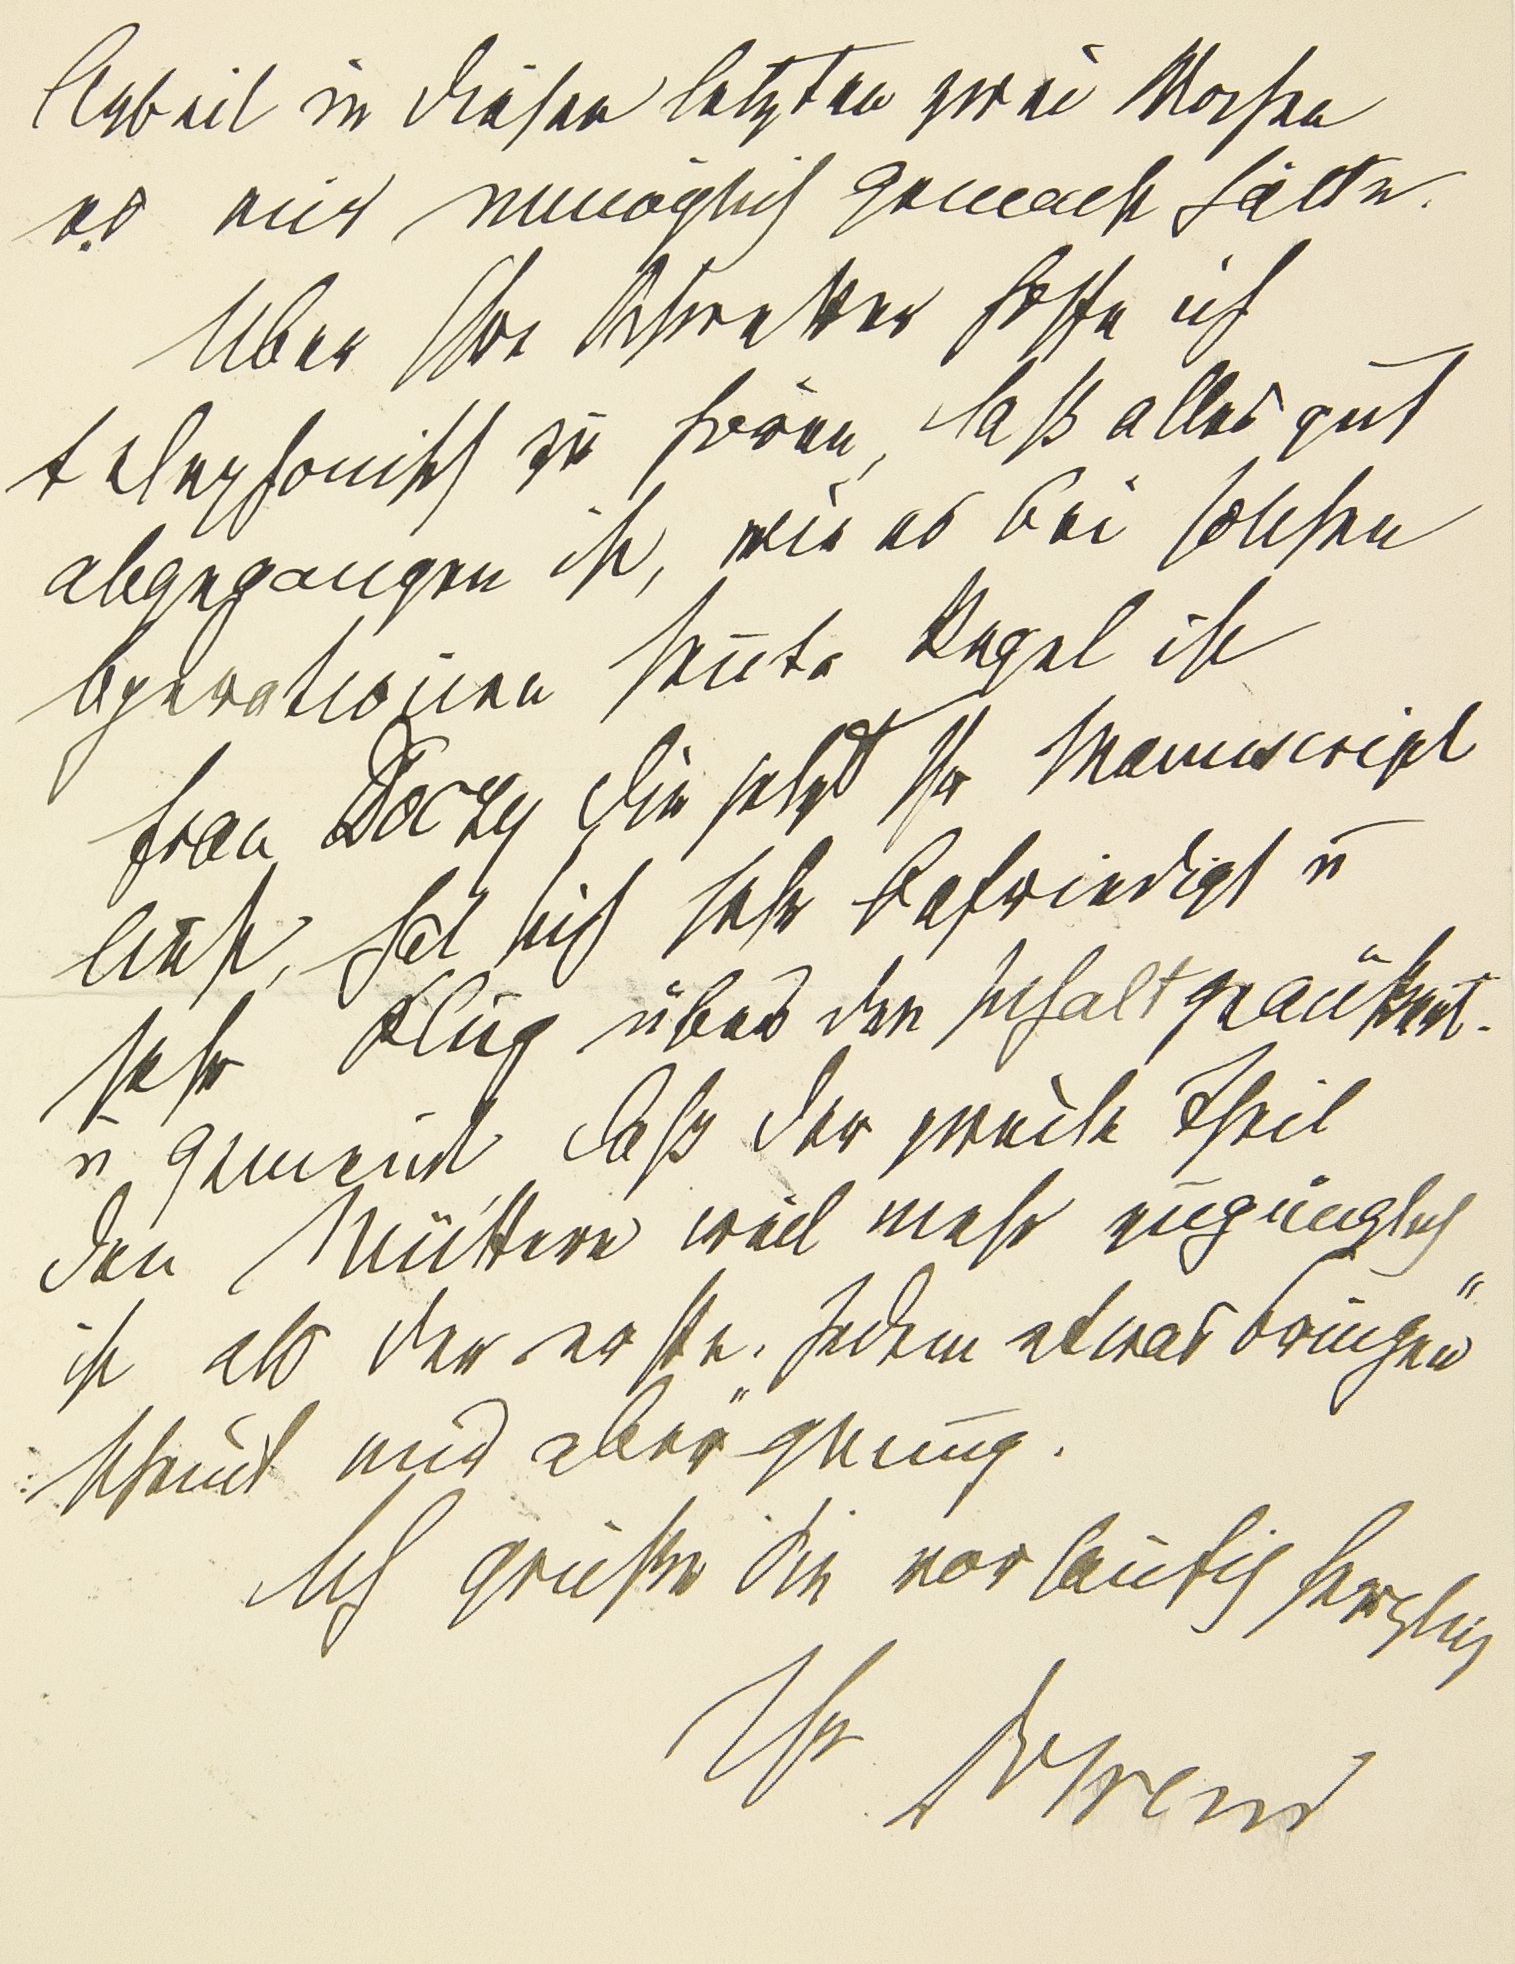 Arbeit in diesen letzten zwei Wochen
es mir unmöglich gemacht hätte.
Über Ihre Schwester hoffe ich
telephonisch zu hören, daß alles gut
abgegangen ist, wie es bei solchen
Operationen heute Regel ist
Frau Dóczy die jetzt Ihr Manuscript
liest, hat sich sehr befriedigt u
sehr klug über den Inhalt geäußert.
u gemeint daß der zweite Theil
den Müttern viel mehr zugänglich
ist als der erste. Jedem etwas bringen"
scheint mir aber" genug.
Ich grüße Sie vorläufig herzlich
Ihr Freud